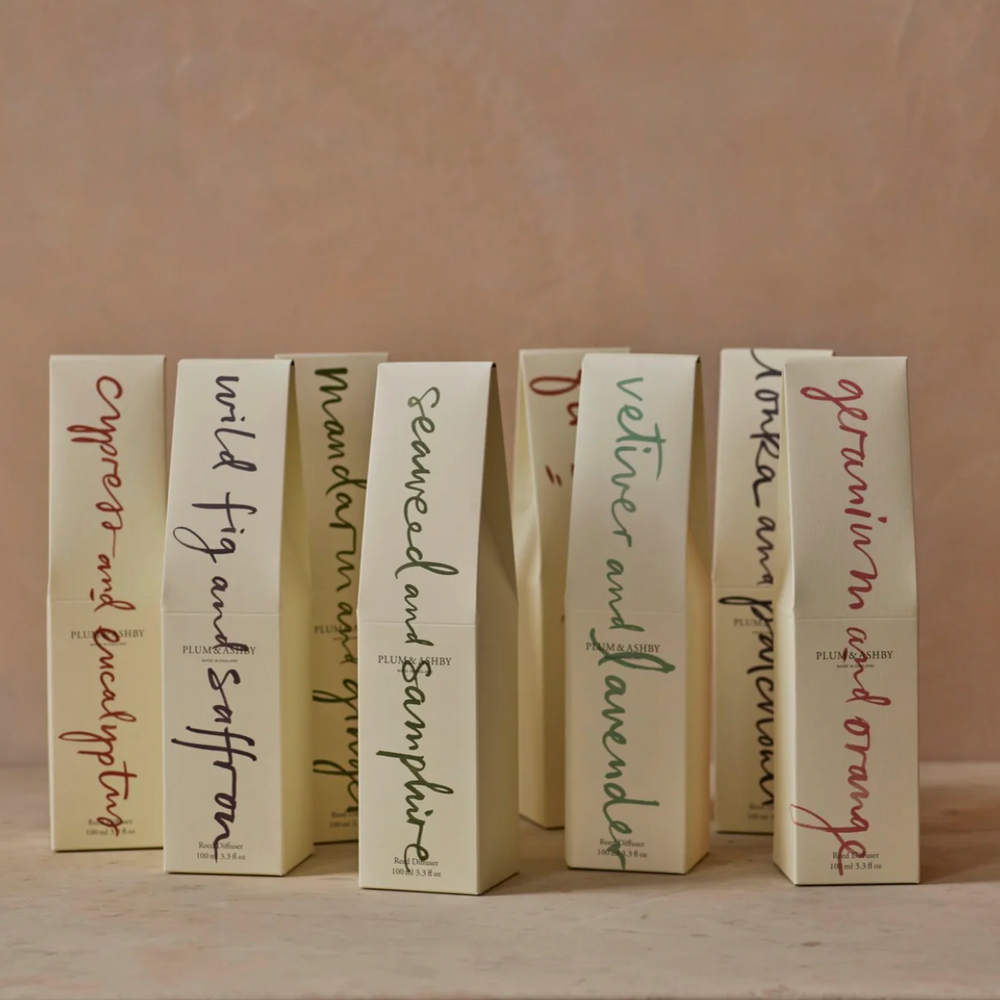 cypress and eucalyptus
PLUM & ASHBY
Reed Diffuser
100 ml 3.3 fl oz
wild fig and saffron
PLUM & ASHBY
MADE IN ENGLAND
Reed Diffuser
100 ml 3.3 fl oz
mandarin and ginger
PLUM
Reed
100 ml
seaweed and samphire
PLUM & ASHBY
Reed Diffuser
100 ml 3.3 fl oz
vetiver and lavender
PLUM & ASHBY
Reed Diffuser
100 ml 3.3 fl oz
tonka and patchouli
PLUM
geranium and orange
PLUM & ASHBY
MADE IN ENGLAND
Reed Diffuser
100 ml 3.3 fl oz